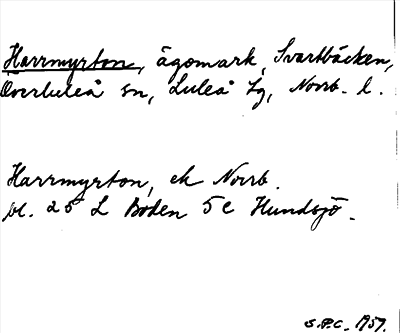 Harrmyrton, ägomark, Svartbäcken,
Överluleå sn, Luleå tg, Norrb. l.
Harrmyrton, ek Norrb.
bl. 25 L Boden 5c Hundsjö.
S.P.C. 1959.